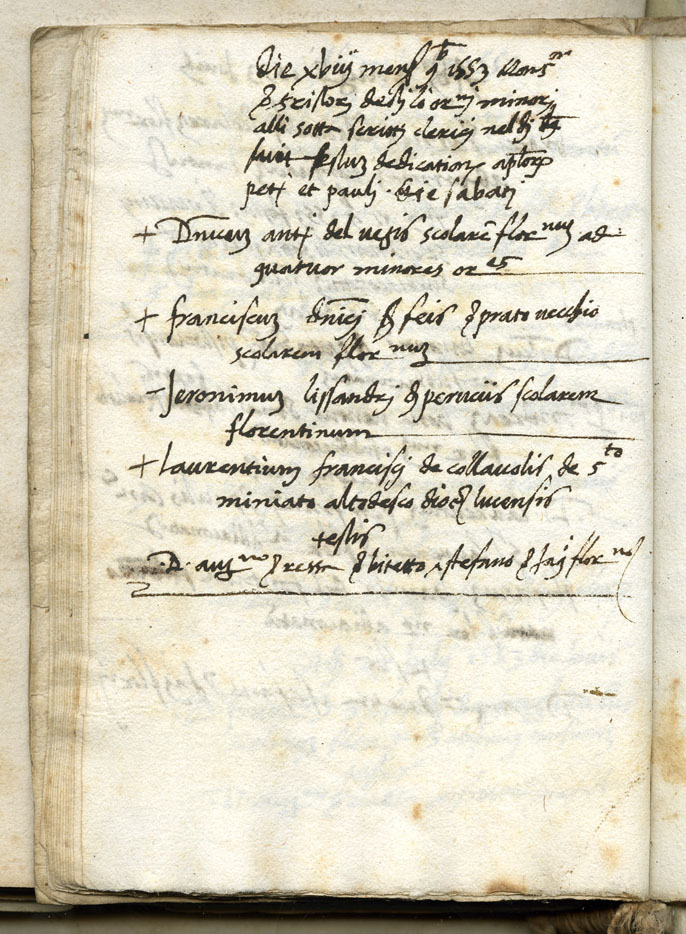 Die xviij mens 9b 1553 Mons or
de li or nj minorj
alli sotto scritti clerici nel
festum dedication aplorum
petrj et paulj · die sabatj
+ Dnicum antj del vegis scolarem flor num ad
quatuor minores or es
+ franciscum dnicj de feis de prato vecchio
scolarem flor num
- Jeronimum lissandrj de peruciis scolarem
florentinum
+ Laurentium francisci de collavolis de s to
miniato altodesco dioc lucensis
testis
· D · aug no de ressa de bitetto stefano de flor no